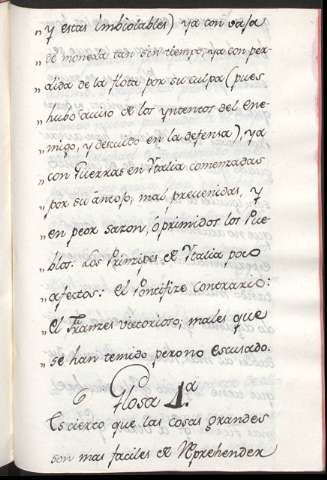 „y estas imbiolables) ya con vaja
„de moneda tan sin tiempo, ya con per-
„dida de la flota por su culpa (pues
„hubo aviso de los yntentos del ene-
„migo, y descuido en la defensa), ya
„con Guerras en Ytalia comenzadas
„por su antojo, mal prevenidas, y
„en peor sazon, oprimidos los Pue-
„blos: Los Prinzipes de Ytalia poco
„afectos: el Pontifize Contrario:
„el Franzes victorioso; males que
„se han temido pero no escusado.
Glosa 4.ª
Es cierto que las cosas grandes
son mas faciles de Reprehender